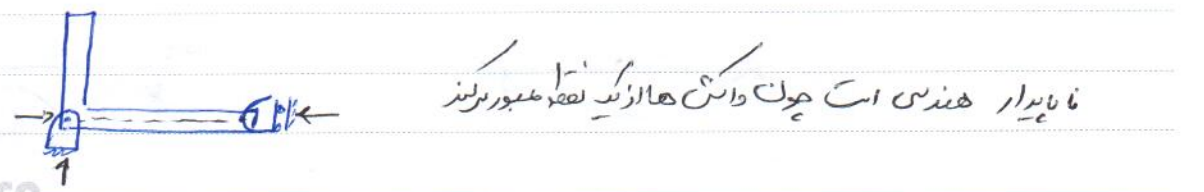 ناپایدار هندسی است چون واکنش ها از یک نقطه عبور میکند